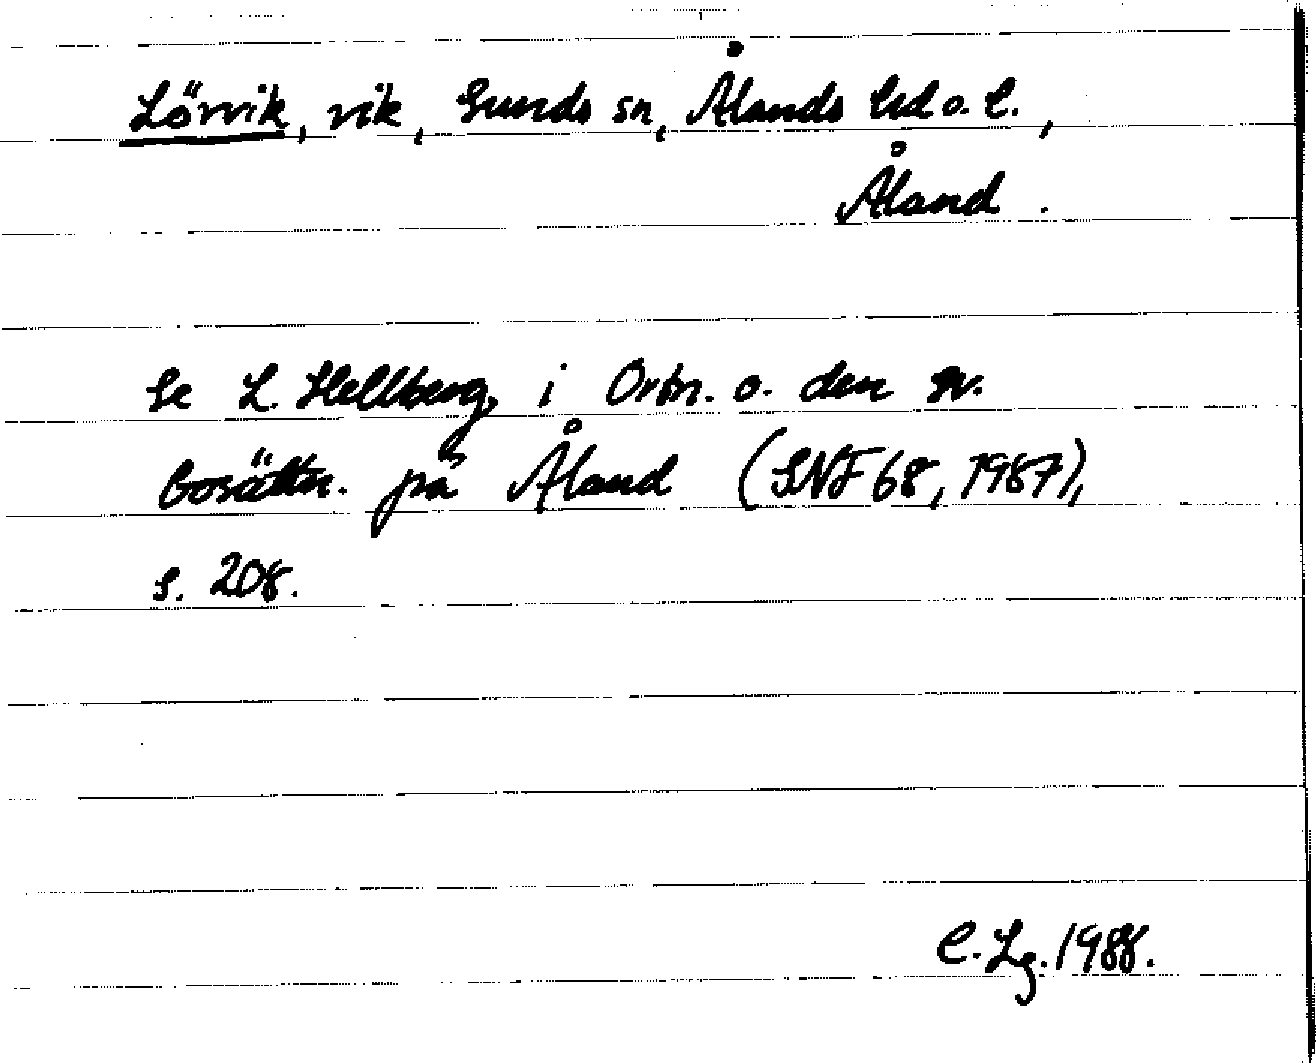 Lövvik, vik, Sunds sn, Ålands hd o. l.,
Åland.
Se L. Hellberg, i Ortn. o. den sv.
bosättn. på Åland (SNF 68, 1987),
s. 208.
C. Lg. 1988.